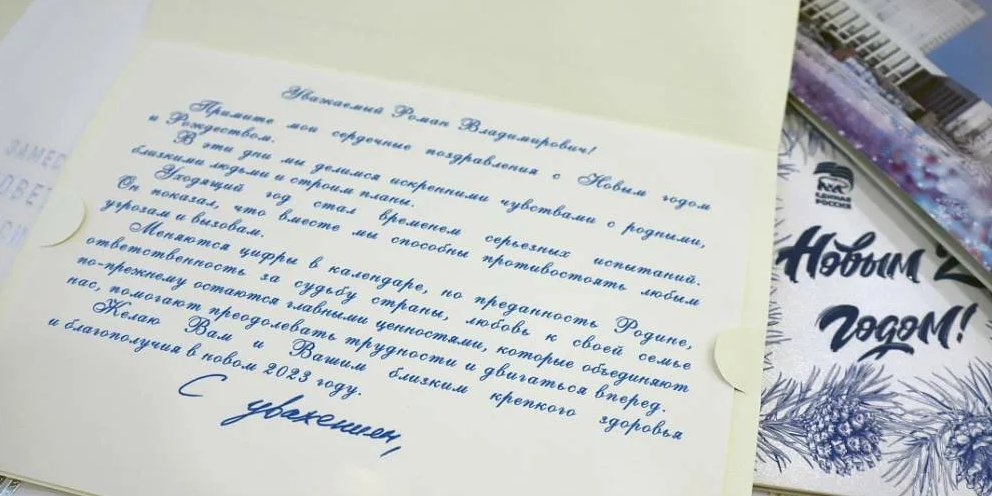 Уважаемый Роман Владимирович!
Примите мои сердечные поздравления с Новым годом
и Рождеством.
В эти дни мы делимся искренними чувствами с родными,
близкими людьми и строим планы.
Уходящий год стал временем серьезных испытаний.
Он показал, что вместе мы способны противостоять любым
угрозам и вызовам.
Меняются цифры в календаре, но преданность Родине,
ответственность за судьбу страны, любовь к своей семье
по-прежнему остаются главными ценностями, которые объединяют
нас, помогают преодолевать трудности и двигаться вперед.
Желаю Вам и Вашим близким крепкого здоровья
и благополучия в новом 2023 году.
С уважением,
ЗАМЕС
ОВЕ
СИ
ЕДИНАЯ
РОССИЯ
Новым 2
годом!